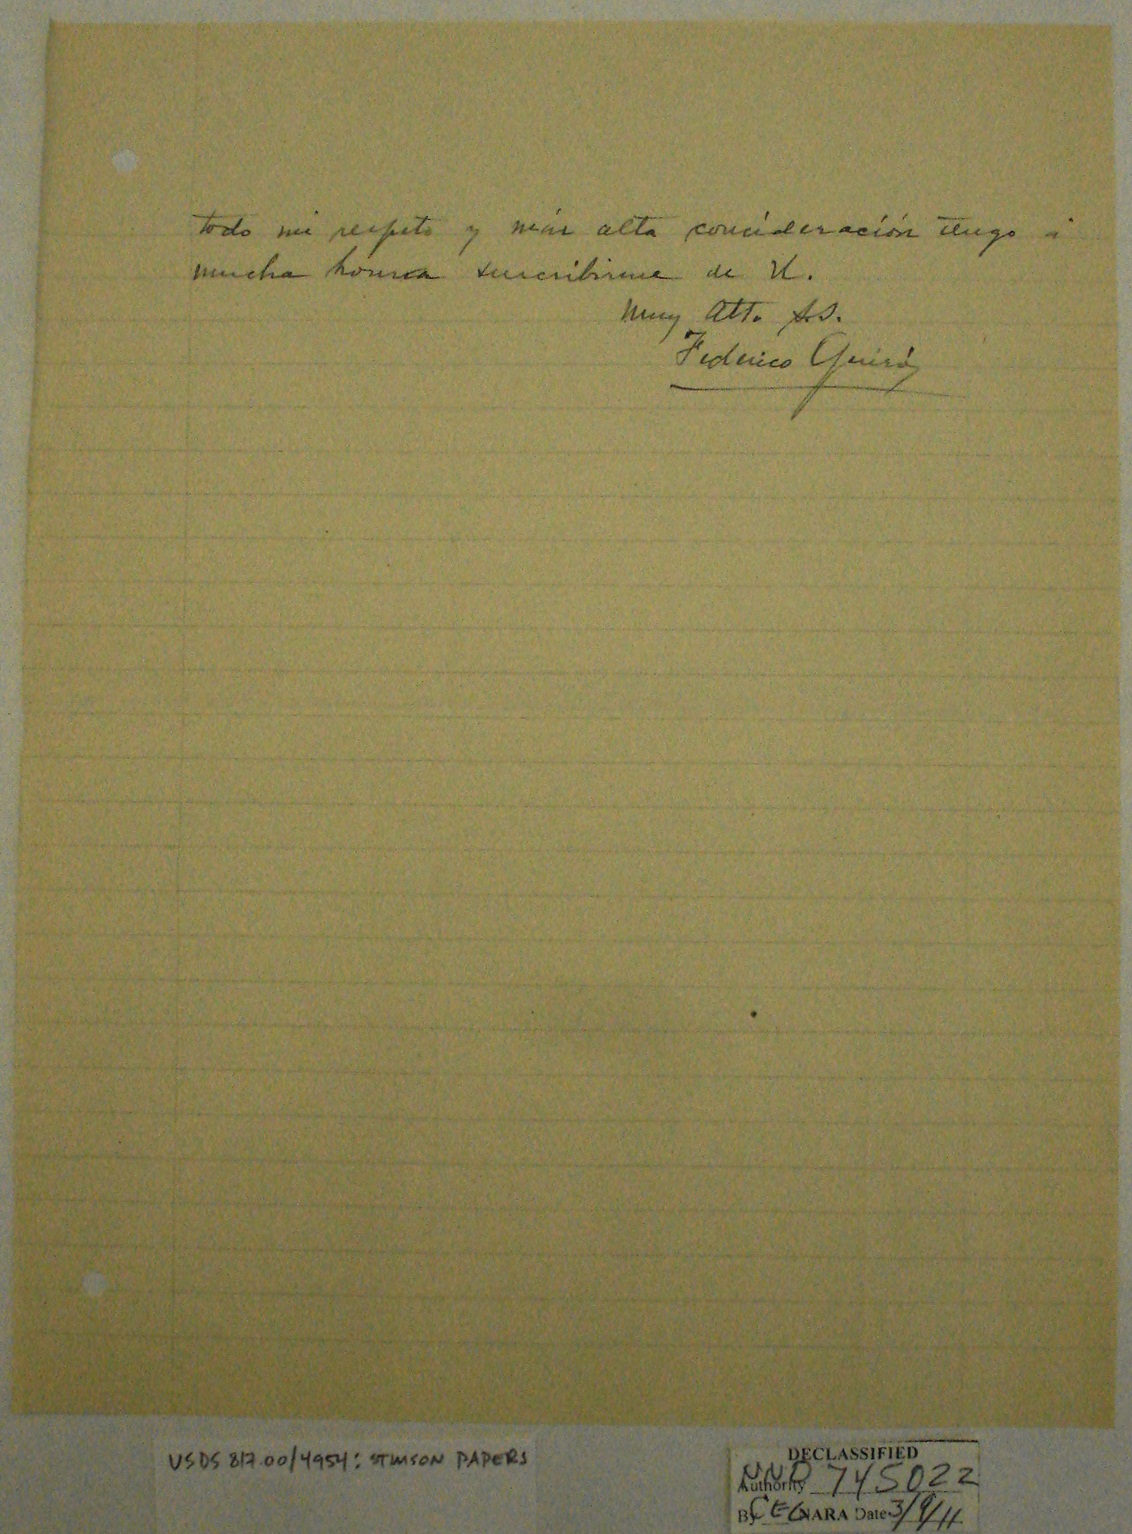 todo mi respeto y más alta concideración tengo á
mucha honra suscribirme de U.
Muy Atto S.S.
Federico Quirós
USDS 817.00/4954: STIMSON PAPERS
DECLASSIFIED
Authority NND 745022
By CEG NARA Date 3/9/11